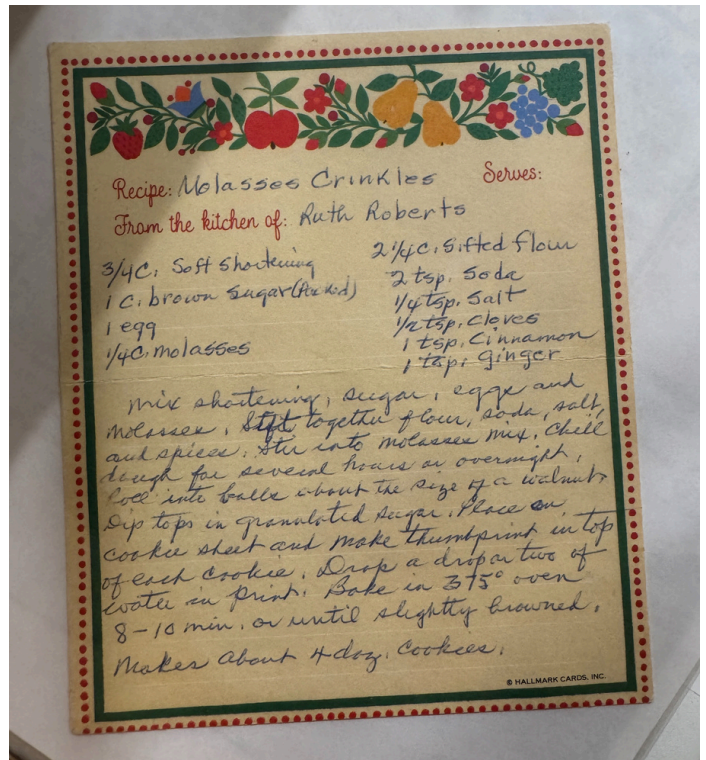 Recipe: Molasses Crinkles Serves:
From the kitchen of: Ruth Roberts
3/4 C. Soft Shortening
1 C. brown sugar (Packed)
1 egg
1/4 C. molasses
2 1/4 C. Sifted flour
2 tsp. Soda
1/4 tsp. Salt
1/2 tsp. Cloves
1 tsp. Cinnamon
1 tsp. Ginger
Mix shortening, sugar, eggs and
molasses. Sift together flour, soda, salt,
and spices. Stir into molasses mix. Chill
dough for several hours or overnight.
Roll into balls about the size of a walnut.
Dip tops in granulated sugar. Place on
cookie sheet and make thumbprint in top
of each cookie. Drop a drop or two of
water in print. Bake in 375° oven
8-10 min. or until slightly browned.
Makes about 4 doz. cookies.
© HALLMARK CARDS, INC.